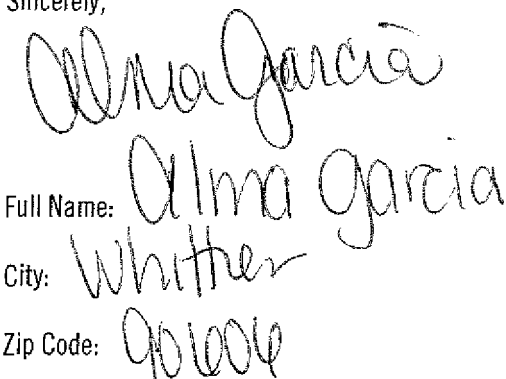 Sincerely,
Alma Garcia
Full Name: Alma Garcia
City: Whittier
Zip Code: 90606